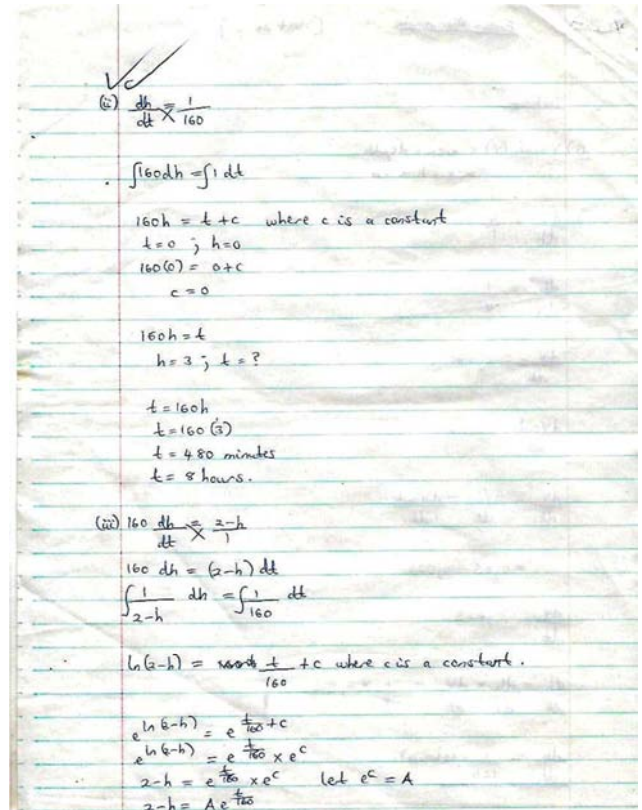 (ii) dh/dt = 1/160
∫160dh = ∫1 dt
160h = t + c where c is a constant
t=0 ; h=0
160(0) = 0+c
c = 0
160h = t
h = 3 ; t = ?
t = 160h
t = 160(3)
t = 480 minutes
t = 8 hours.
(iii) 160 dh/dt = 2-h/1
160 dh = (2-h) dt
∫ 1/2-h dh = ∫ 1/160 dt
ln(2-h) = t/160 + c where c is a constant.
e^ln(2-h) = e^t/160 + c
e^ln(2-h) = e^t/160 × e^c
2-h = e^t/160 × e^c let e^c = A
2-h = A e^t/160